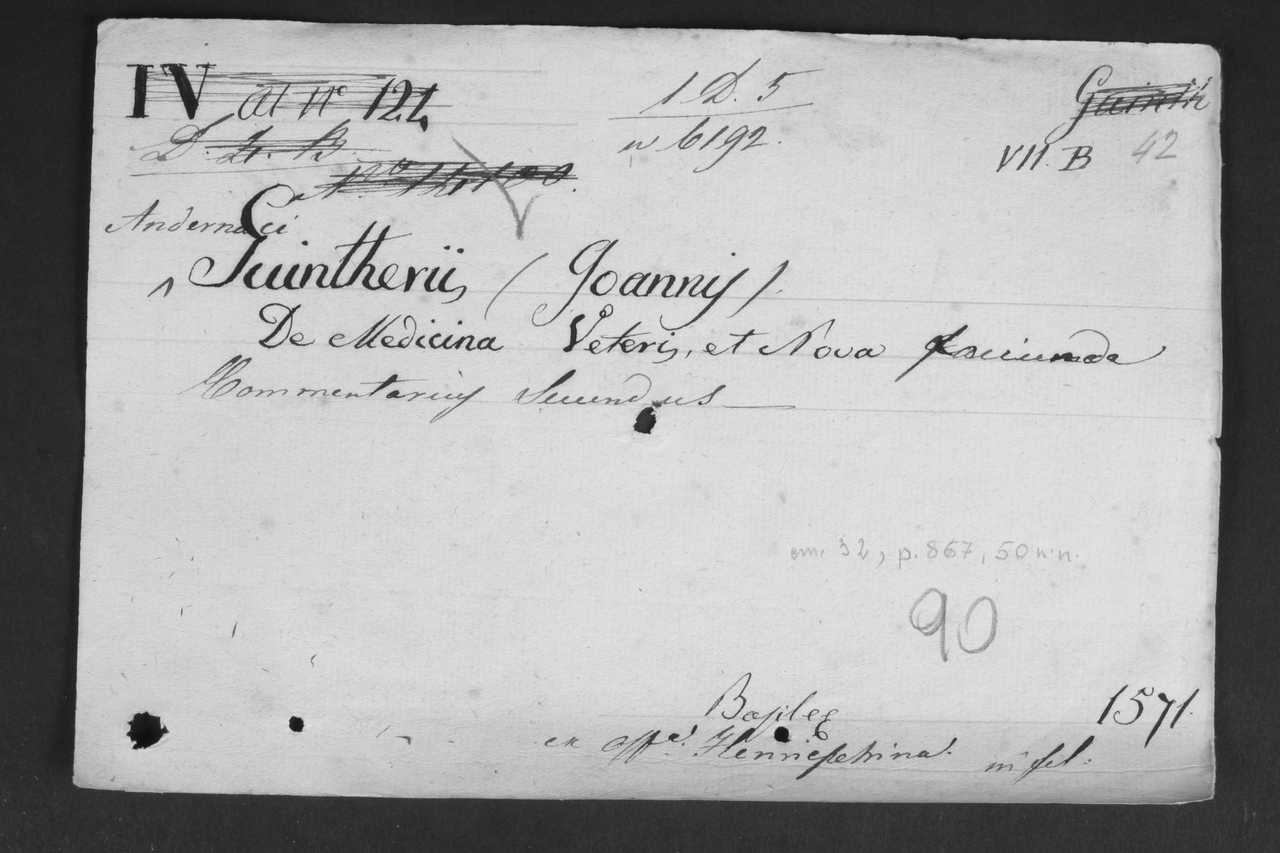 IV at Nº 121
D. Z. B.
1 D. 5
nº 6192.
Guinth
VII B 42
Andernaci
Guintherii, (Joannis)
De Medicina Veteri, et Nova faciunda
Commentarius Secundus
cm. 32, p. 867, 50 n.n.
90
Basileę 1571.
ex offª. Henricpetrina. in fol.